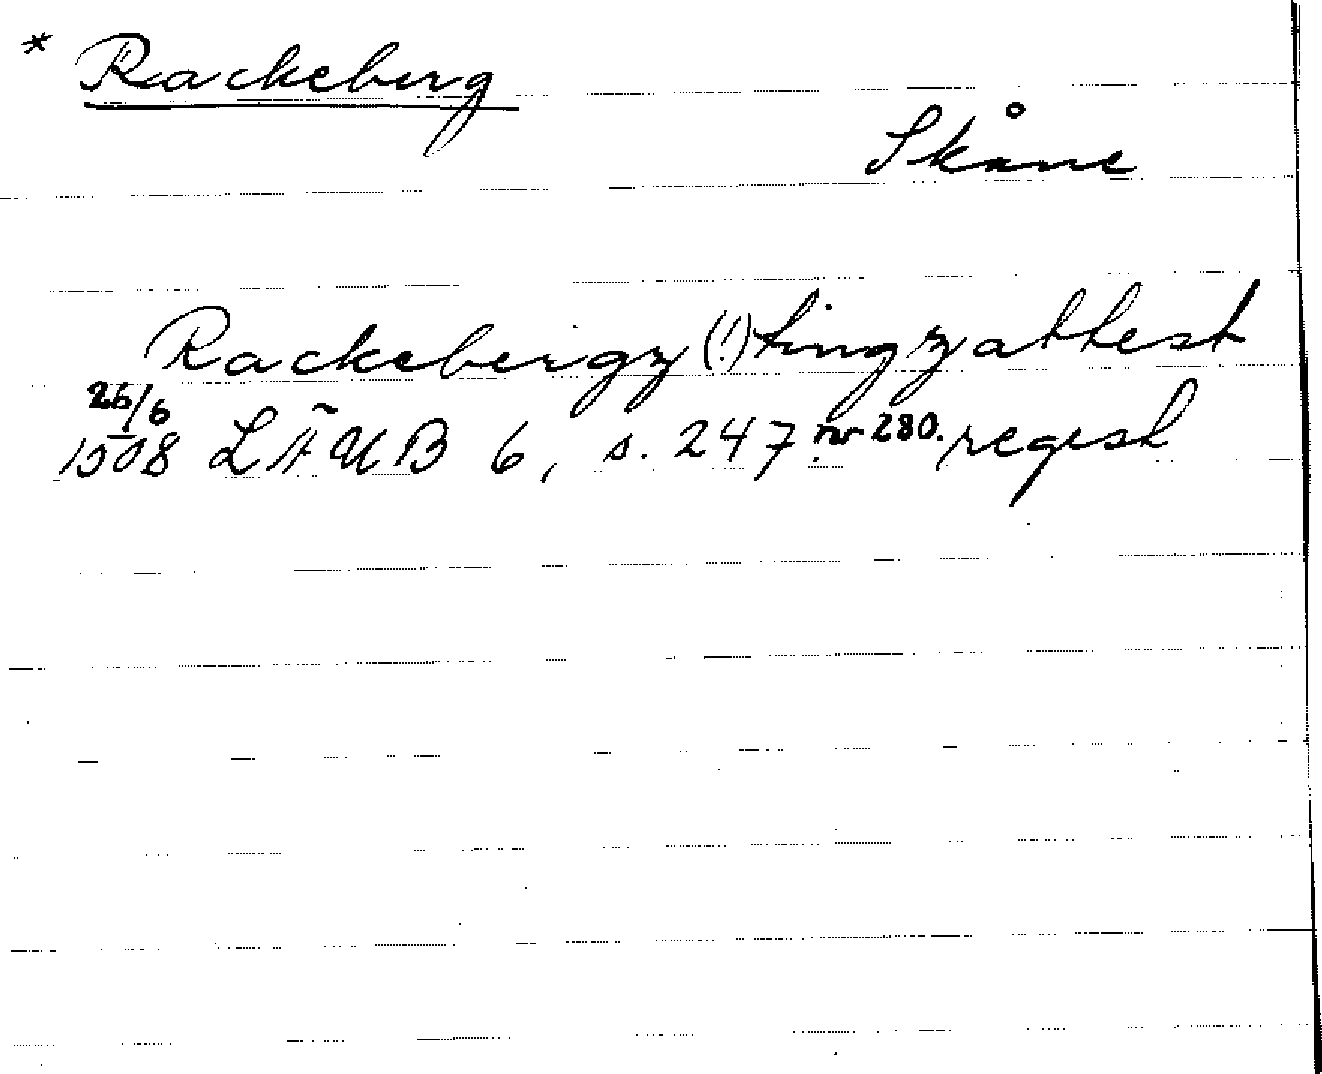 * Rackeberg
Skåne
Rackebergz (!) tingz attest
26/6
1508 LÄUB 6, s. 247 nr 280. regest